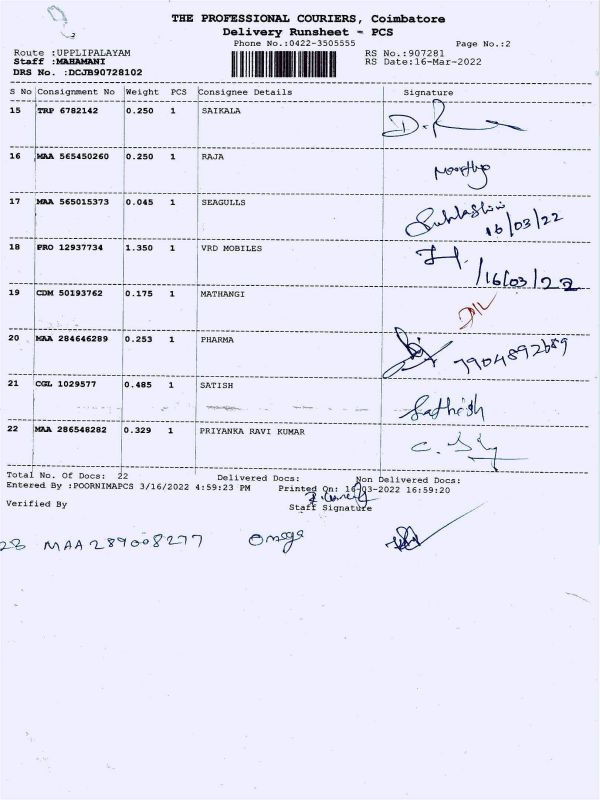 THE PROFESSIONAL COURIERS, Coimbatore
Delivery Runsheet - PCS
Phone No.:0422-3505555 Page No.:2
Route :UPPLIPALAYAM RS No.:907281
Staff :MAHAMANI RS Date:16-Mar-2022
DRS No. :DCJB90728102
S No Consignment No Weight PCS Consignee Details Signature
15 TRP 6782142 0.250 1 SAIKALA
16 MAA 565450260 0.250 1 RAJA
17 MAA 565015373 0.045 1 SEAGULLS
16/03/22
18 PRO 12937734 1.350 1 VRD MOBILES
16/03/22
19 CDM 50193762 0.175 1 MATHANGI
20 MAA 284646289 0.253 1 PHARMA
21 CGL 1029577 0.485 1 SATISH Sathish
22 MAA 286548282 0.329 1 PRIYANKA RAVI KUMAR
Total No. Of Docs: 22 Delivered Docs: Non Delivered Docs:
Entered By :POORNIMAPCS 3/16/2022 4:59:23 PM Printed On: 16-03-2022 16:59:20
Verified By Staff Signature
MAA 289008277 Omega